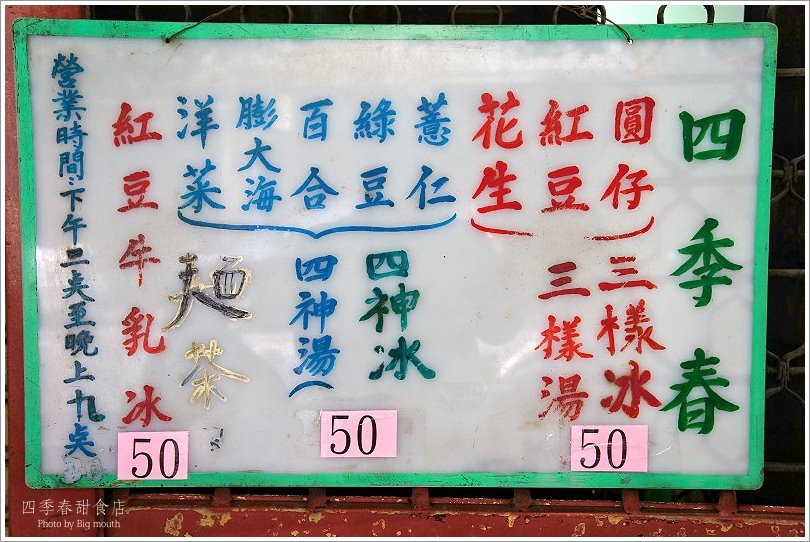 四季春
圓仔
紅豆
花生
三樣冰
三樣湯
50
薏仁
綠豆
百合
膨大海
洋菜
四神冰
四神湯
50
麵茶
紅豆牛乳冰
50
營業時間:下午二点至晚上九点
四季春甜食店
Photo by Big mouth